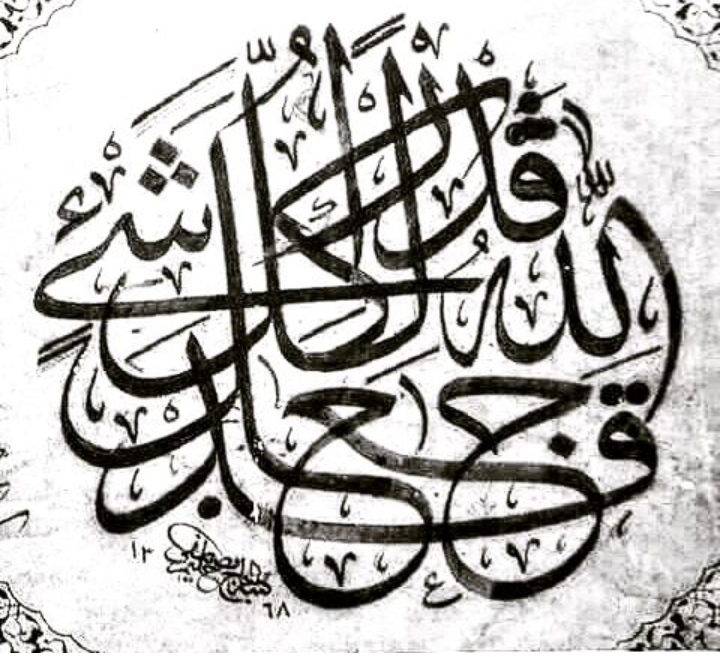 قد جعل الله لكل شئ قدرا
١٣ ٦٨